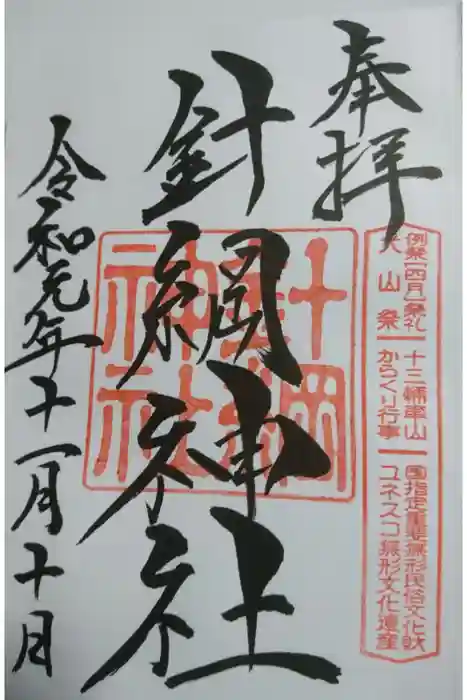 奉拝
例祭(四月)祭礼
犬山祭
十三輌車山
からくり行事
国指定重要無形民俗文化財
ユネスコ無形文化遺産
針綱神社
針綱
神社
令和元年十一月十月